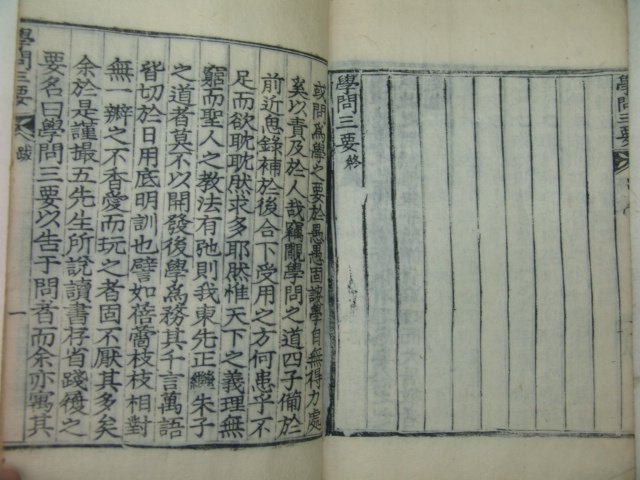 學問三要
學問三要終
或問爲學之要於愚愚固諛學自無得力處
奚以責及於人哉竊覵學問之道四子備於
前近思錄補於後合下受用之方何患乎不
足而欲耽耽然求多耶然惟天下之義理無
窮而聖人之教法有弛則我東先正繼朱子
之道者莫不以開發後學爲務其千言萬語
皆切於日用底明訓也譬如蓓蕾枝枝相對
無一瓣之不香愛而玩之者固不厭其多矣
余於是謹撮五先生所說讀書存省踐履之
要名曰學問三要以告于問者而余亦寓其
學問三要 跋 一